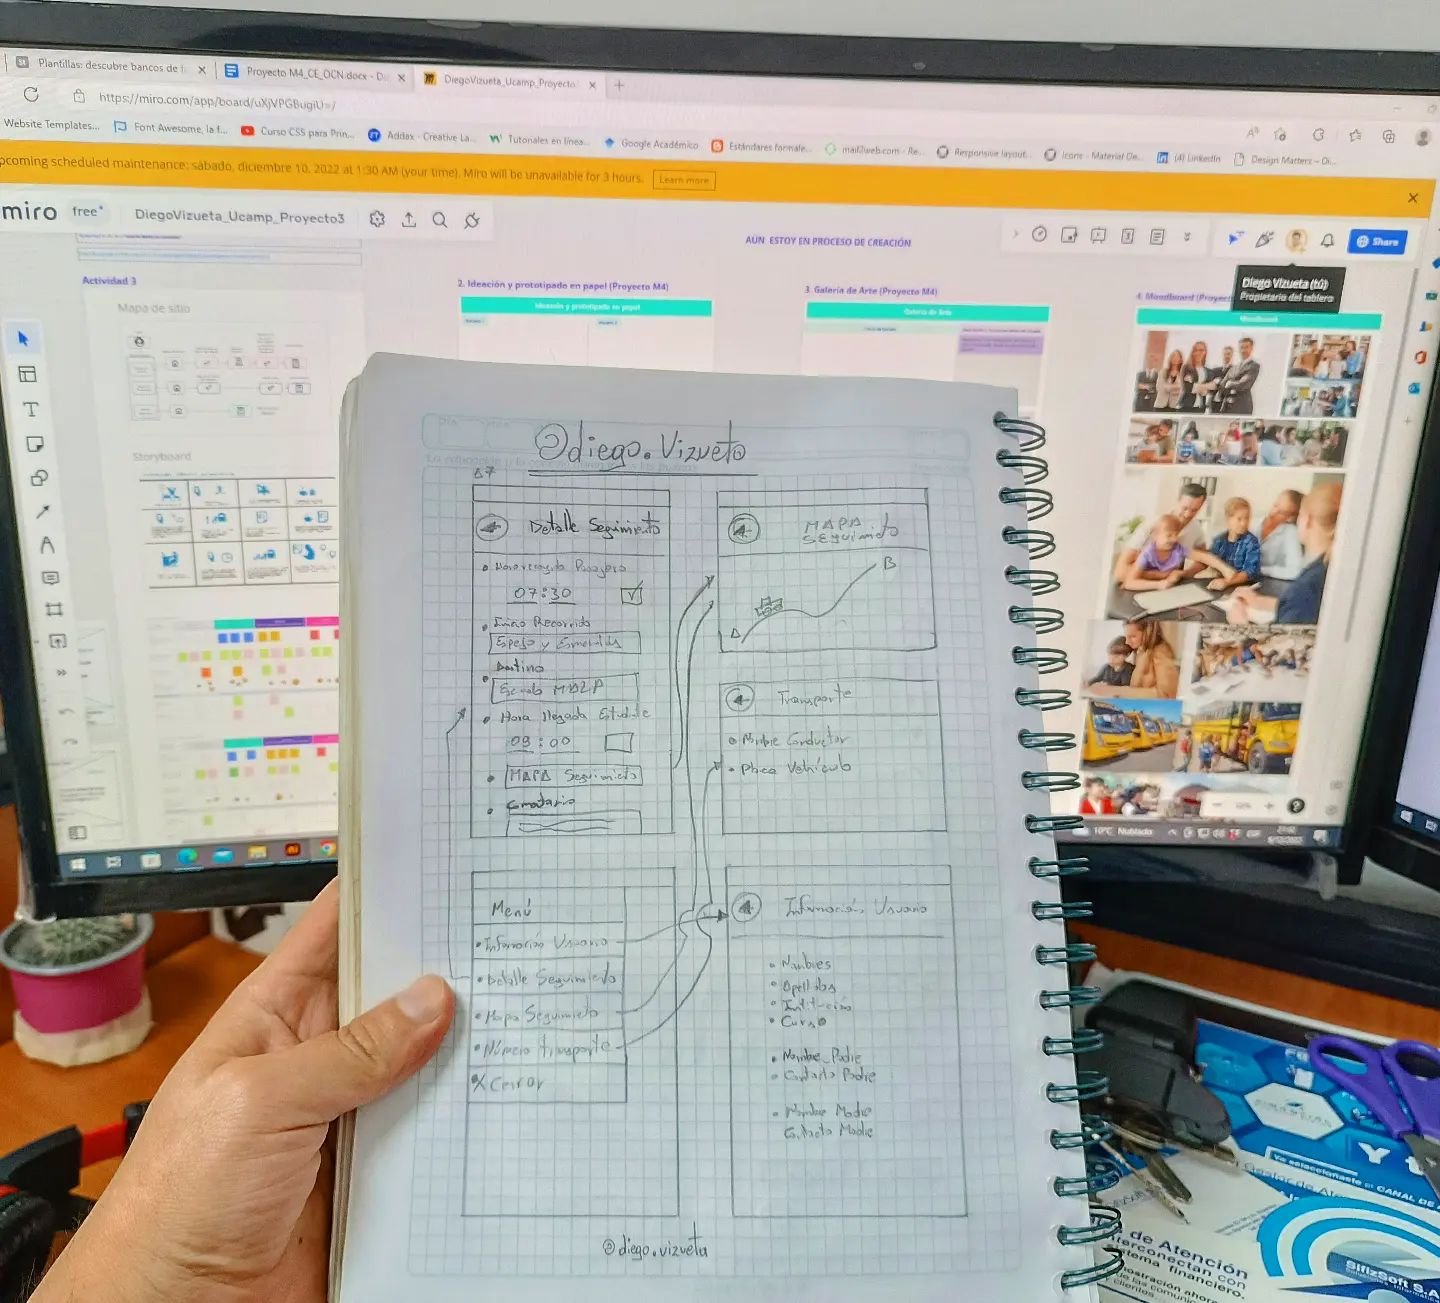 Plantillas: descubre bancos de f
Proyecto M4_CE_OCN.docx - D
DiegoVizueta_Ucamp_Proyecto
https://miro.com/app/board/uXjVPGBugiU=/
Website Templates...
Font Awesome, la f...
Curso CSS para Prin...
Addax - Creative La...
Tutoriales en línea...
Google Académico
Estándares formale...
mail2web.com - Re...
Responsive layout...
Icons - Material De...
(4) LinkedIn
Design Matters – Di...
pcoming scheduled maintenance: sábado, diciembre 10, 2022 at 1:30 AM (your time). Miro will be unavailable for 3 hours.
Learn more
miro
free
DiegoVizueta_Ucamp_Proyecto3
Share
AÚN ESTOY EN PROCESO DE CREACIÓN
Diego Vizueta (tú)
Propietario del tablero
Actividad 3
Mapa de sitio
Storyboard
2. Ideación y prototipado en papel (Proyecto M4)
Ideación y prototipado en papel
3. Galería de Arte (Proyecto M4)
Galería de Arte
4. Moodboard (Proyec
Moodboard
10°C Nublado
@diego.Vizueta
Detalle Seguimiento
Hora recogida Pasajero
07:30
Inicio Recorrido
Espejo y Esmeraldas
Destino
Escuela
Hora llegada Estudiante
09:00
MAPA Seguimiento
Comentario
MAPA
SEGUIMIENTO
A
B
Transporte
Nombre Conductor
Placa Vehículo
Menú
Información Usuario
Detalle Seguimiento
Mapa Seguimiento
Número transporte
X Cerrar
Información Usuario
Nombres
Apellidos
Institución
Curso
Nombre Padre
Contacto Padre
Nombre Madre
Contacto Madre
@diego.vizueta
de Atención
nterconectan con
stema financiero.
SifizSoft S.A